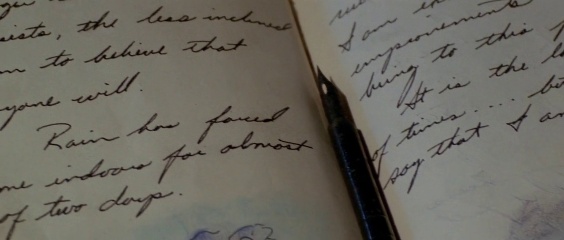 sists, the less inclined
m to believe that
yone will.
Rain has forced
me indoors for almost
of two days.
I am
imprisonments
being to this
It is the
of times.... but
say that I am